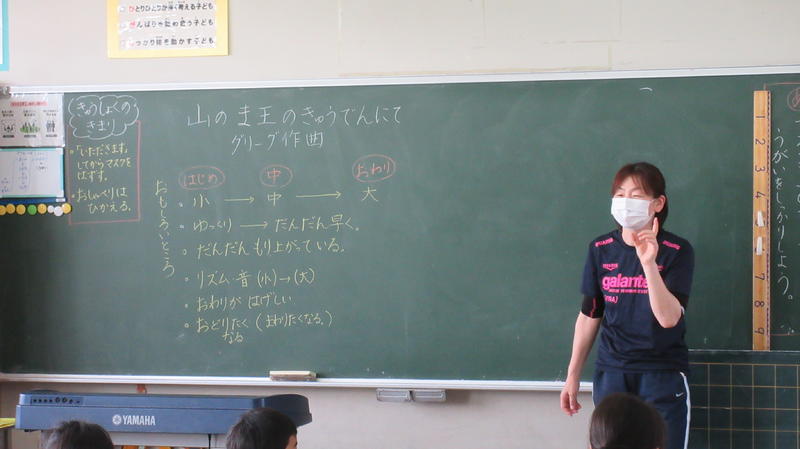 ひとりひとりが深く考える子ども
がんばりを認め合う子ども
しっかり体を動かす子ども
きゅうしょくの
きまり
「いただきます」
してからマスクを
はずす。
おしゃべりは
ひかえる。
山のま王のきゅうでんにて
グリーグ作曲
おもしろいところ
はじめ 中 おわり
小 → 中 → 大
ゆっくり → だんだん早く。
だんだんもり上がっている。
リズム 音(小)→(大)
おわりがはげしい
おどりたく(まわりたくなる。)
なる
1
2
3
4
7
8
9
うがいをしっかりしよう。
galante
YAMAHA